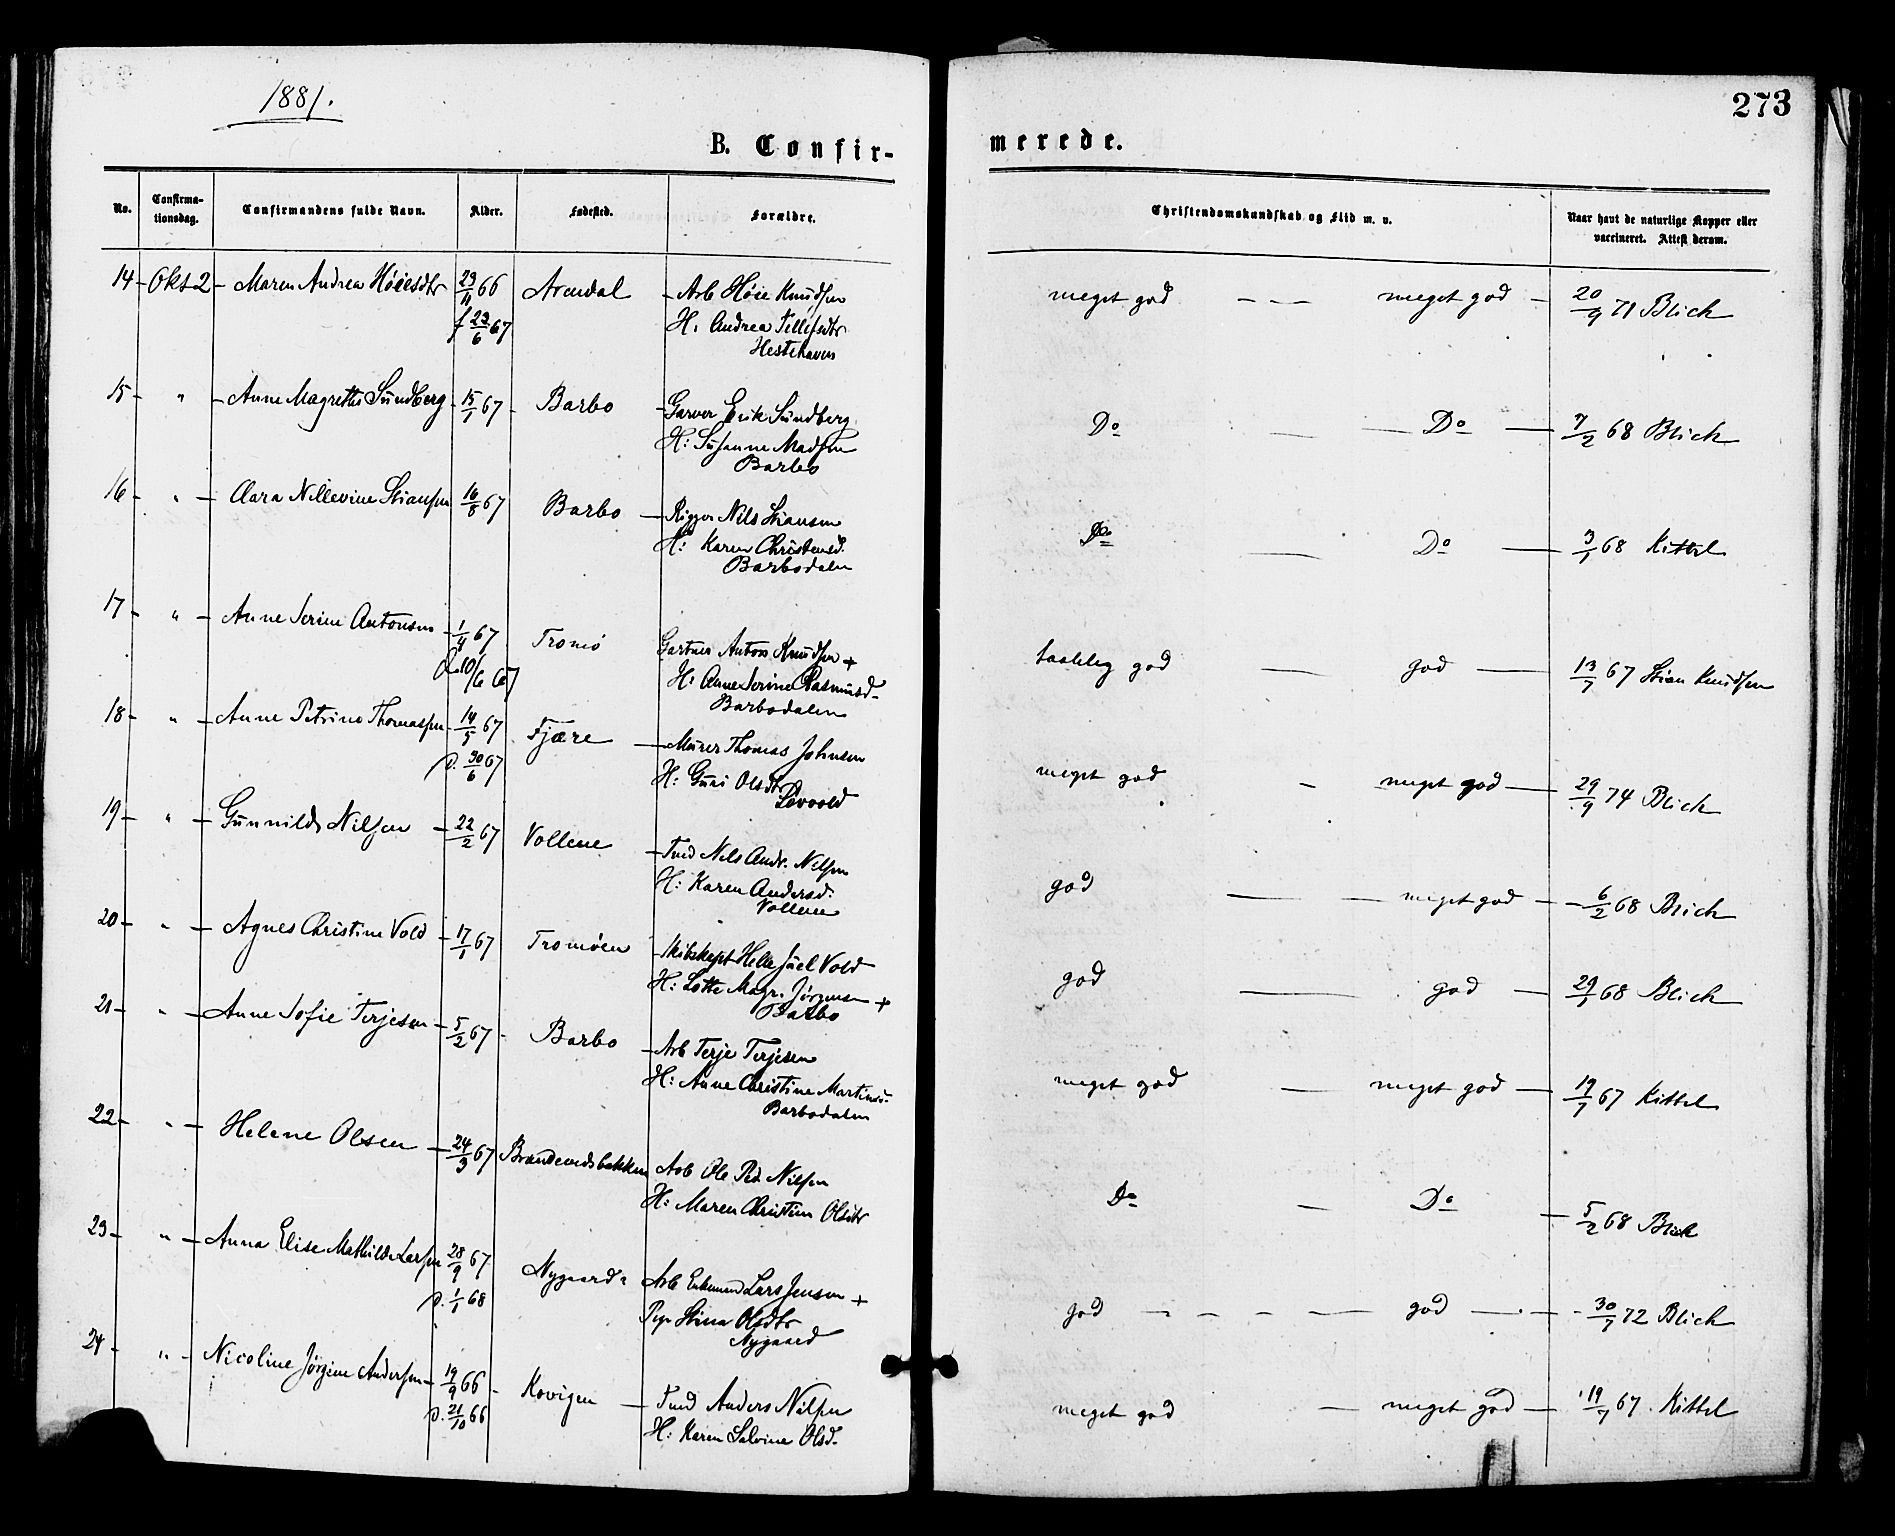 1881.
273
B. Confir-
merede.
No. Confirma-tionsdag. Confirmandens fulde Navn. Alder. Fødested. Forældre. Christendomskundskab og Flid m. v. Naar havt de naturlige Kopper eller vaccineret. Attest derom.
14 - Okt 2 - Maren Andrea Høiesdtr 23/11 66 Arendal - Arb Høie Knudsen meget god - - - meget god - 20/9 71 Blich
f 23/6 67 H: Andrea Tellefsdtr
Hestehaven
15 - " - Anne Magrethe Sundberg - 15/1 67 - Barbo - Garver Erik Sundberg Do - - Do - 7/2 68 Blich
H: Susanne Madsen
Barbo
16 - " - Clara Nillevine Stiansen 16/8 67 Barbo - Rigger Nils Stiansen Do - Do - 3/1 68 Kittel
H: Karen Christensd.
Barbodalen
17 - " - Anne Serine Antonsen - 1/4 67 Tromø Gartner Anton Knudsen + taalelig god - god - 13/7 67 Stian Knudsen
10/6 67 H: Anne Serine Rasmusd-
Barbodalen
18 - " - Anne Petrine Thomassen - 14/5 67 - Fjære - Murer Thomas Johnsen meget god - meget god - 29/9 74 Blich
D. 30/6 67 H: Guri Olsdtr
19 - " - Gunnilds Nilsen - 22/2 67 Vollene - Tmd Nils Andr. Nilsen god - - meget god - 6/2 68 Blich
H: Karen Andersd.
Vollene
20 - " - Agnes Christine Vold - 17/1 67 Tromøen - Skibskapt Helle Juel Vold god - god - 29/1 68 Blich
H: Lotte Magr. Jørgensen +
Barbo
21 - " - Anne Sofie Terjesen - 5/2 67 - Barbo - Arb Terje Terjesen meget god - meget god - 19/7 67 Kittel
H: Anne Christine
Barbodalen
22 - " - Helene Olsen - 24/3 67 Brændevedsbakken Arb Ole Ped. Nilsen Do - Do - 5/2 68 Blich
H: Maren Christine Olsdtr
23 - " - Anna Elise Mathilde Larsen 28/9 67 Nygaard Arb Lars Jensen + god - - - - god - - - 30/7 72 Blich
D. 1/1 68 Pige Stina Olsdtr
Nygaard
24 - " - Nicoline Jørgine Andersen - 19/9 66 - Kovigen - Tmd Anders Nilsen meget god - meget god - 19/7 67. Kittel
D. 21/10 66 H: Karen Salvine Olsd-